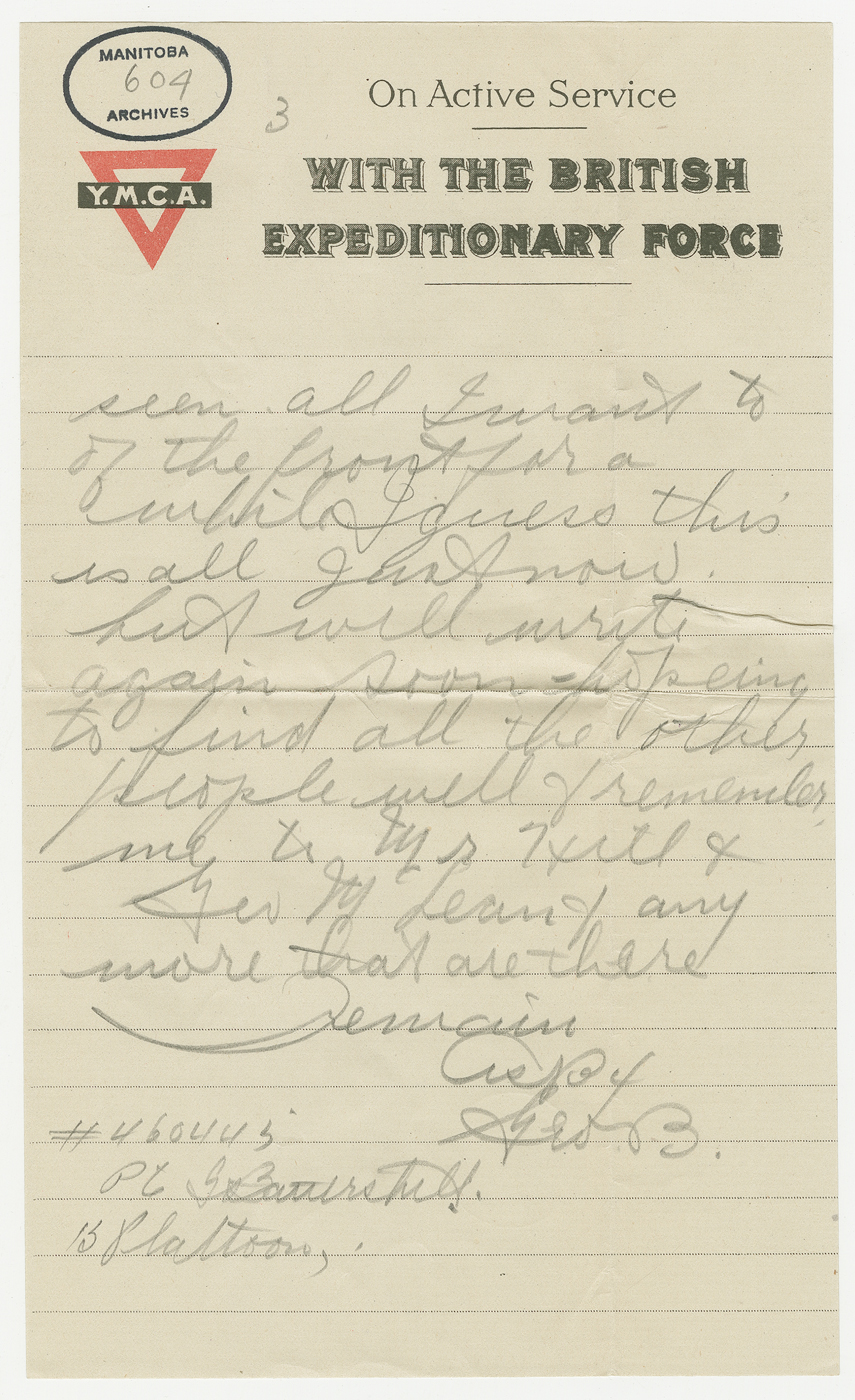 MANITOBA
604
ARCHIVES
3
On Active Service
Y.M.C.A.
WITH THE BRITISH
EXPEDITIONARY FORCE
seen all I want to
of the front for a
while I guess this
is all just now.
but will write
again soon - hopeing
to find all the other
people well & remember
me to Mrs Hill &
Geo McLean & any
more that are there
Remain
As By
Geo B.
#460445
Pt G Battershill.
13 Plattoon,